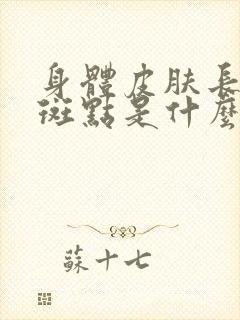 身體皮肤長
斑點是什麼
蘇十七